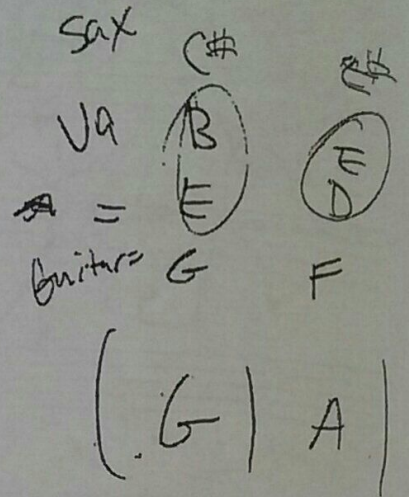 Sax C#
Va B E
= E D
Guitar= G F
(.G | A |